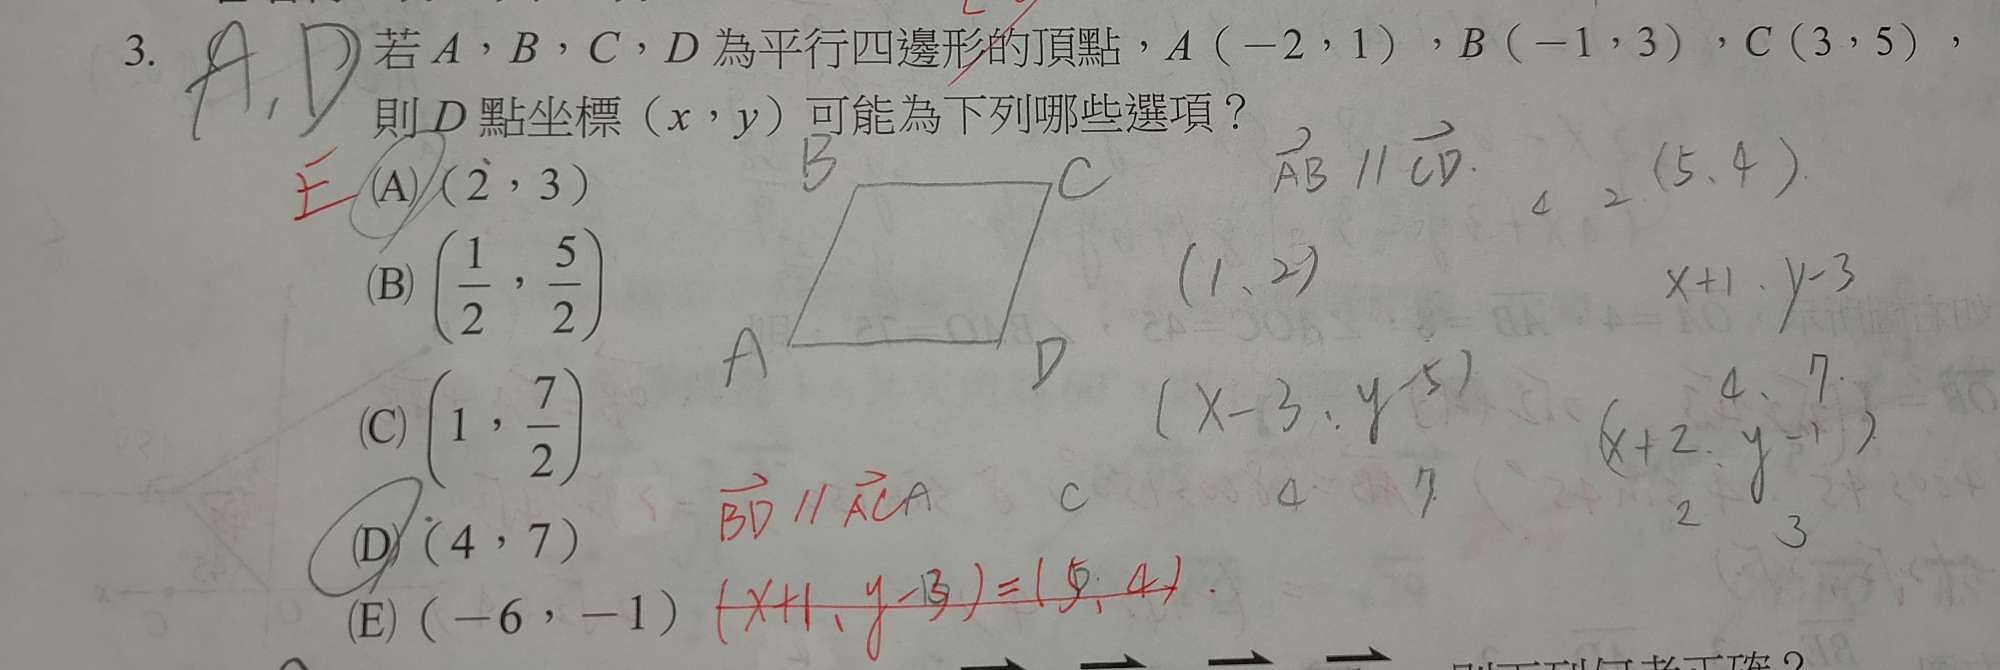 3. A, D 若 A，B，C，D 為平行四邊形的頂點，A（－2，1），B（－1，3），C（3，5），
則 D 點坐標（x，y）可能為下列哪些選項？
E (A)（2，3）
(B) (1/2，5/2)
(C) (1，7/2)
(D)（4，7）
(E)（－6，－1）
B C
A D
AB // CD.
4 2 (5、4).
(1、2)
x+1、y-3
(x-3、y-5)
4 7
4、7
(x+2、y-1)
2 3
BD // AC A C
(x+1、y-3)=(5、4).